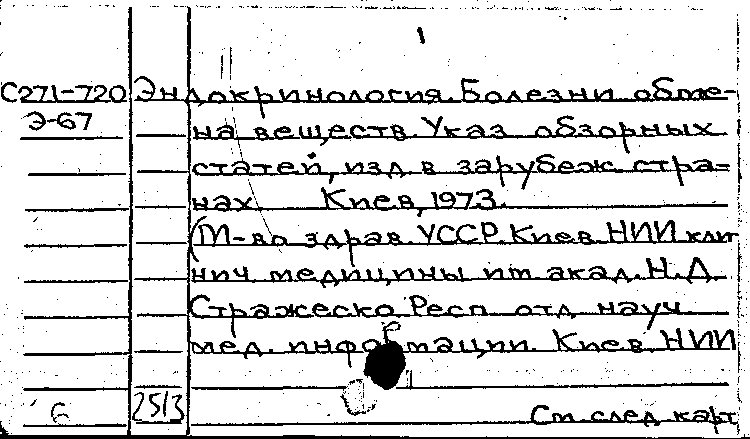 1
С271-720 Эндокринология. Болезни обме-
Э-67 на веществ. Указ. обзорных
статей, изд. в зарубеж. стра-
нах. Киев, 1973.
(М-во здрав. УССР. Киев. НИИ клин
нич. медицины им. акад. Н.Д.
Стражеско. Респ. отд. науч.
мед. информации. Киев. НИИ
2513
См. след. карт